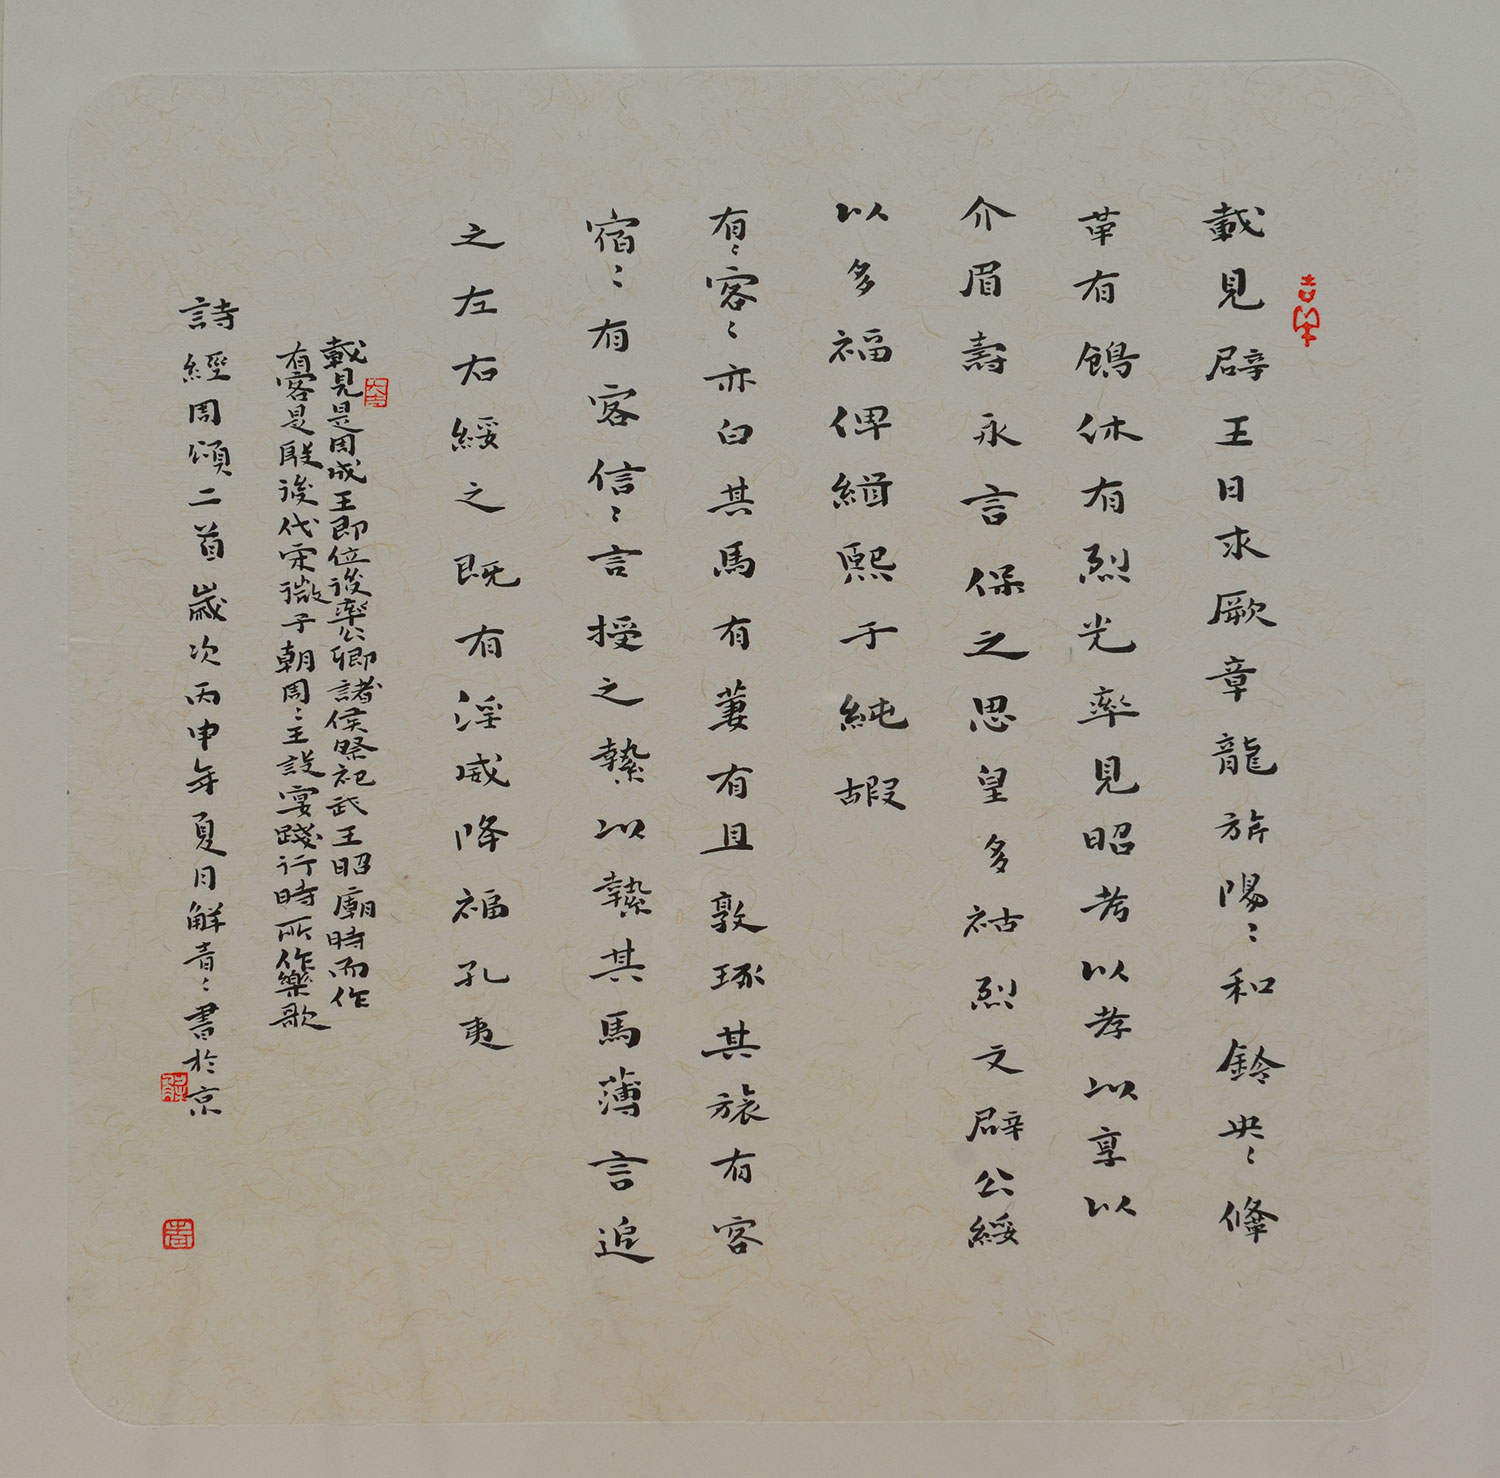 載見辟王曰求厥章龍旂陽〻和鈴央〻鞗
革有鶬休有烈光率見昭考以孝以享以
介眉壽永言保之思皇多祜烈文辟公綏
以多福俾緝熙于純嘏
有〻客〻亦白其馬有萋有且敦琢其旅有客
宿〻有客信〻言授之縶以縶其馬薄言追
之左右綏之既有淫威降福孔夷
載見是周成王即位後率公卿諸侯祭祀武王昭廟時而作
有客是殷後代宋微子朝周〻王設宴踐行時所作樂歌
詩經周頌二首歲次丙申年夏月解青〻書於京
大吉